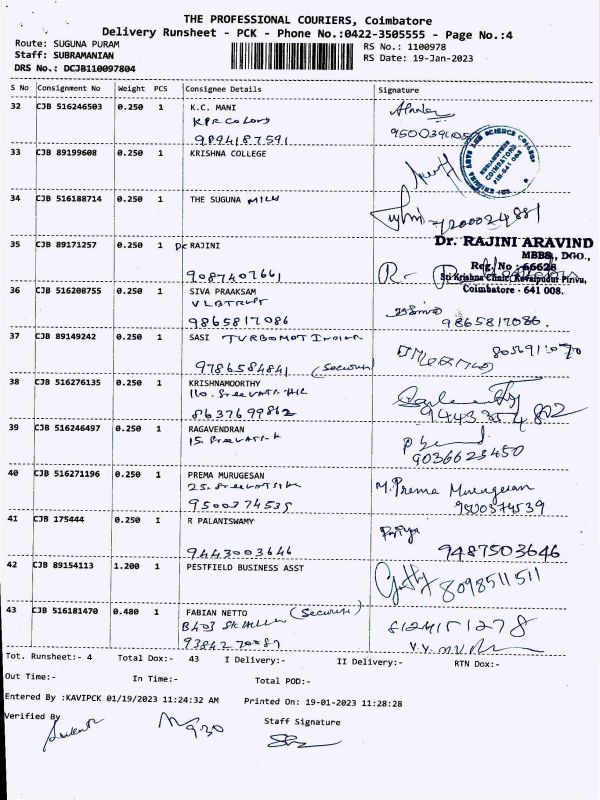 THE PROFESSIONAL COURIERS, Coimbatore
Delivery Runsheet - PCK - Phone No.:0422-3505555 - Page No.:4
Route: SUGUNA PURAM
RS No.: 1100978
Staff: SUBRAMANIAN
RS Date: 19-Jan-2023
DRS No.: DCJB110097804
S No Consignment No Weight PCS Consignee Details Signature
32 CJB 516246503 0.250 1 K.C. MANI
KPR COLONY
9894187591
33 CJB 89199608 0.250 1 KRISHNA COLLEGE
34 CJB 516188714 0.250 1 THE SUGUNA MILK
35 CJB 89171257 0.250 1 Dr RAJINI
Dr. RAJINI ARAVIND
MBBS., DGO.,
Reg. No : 66628
Sri Krishna Clinic, Kovaipudur Pirivu,
Coimbatore - 641 008.
9087407661
36 CJB 516208755 0.250 1 SIVA PRAAKSAM
9865817086 9865817086.
37 CJB 89149242 0.250 1 SASI TURBOMOT INDIA
9786584841 (Securit)
38 CJB 516276135 0.250 1 KRISHNAMOORTHY
8637699862
39 CJB 516246497 0.250 1 RAGAVENDRAN
9036623450
40 CJB 516271196 0.250 1 PREMA MURUGESAN
M. Prema Murugesan
9500374535 9500374539
41 CJB 175444 0.250 1 R PALANISWAMY
Priya
9443003646 9487503646
42 CJB 89154113 1.200 1 PESTFIELD BUSINESS ASST
8098511511
43 CJB 516181470 0.480 1 FABIAN NETTO (Securit)
6124151278
Tot. Runsheet:- 4 Total Dox:- 43 I Delivery:- II Delivery:- RTN Dox:-
Out Time:- In Time:- Total POD:-
Entered By :KAVIPCK 01/19/2023 11:24:32 AM Printed On: 19-01-2023 11:28:28
Verified By Staff Signature
9.30